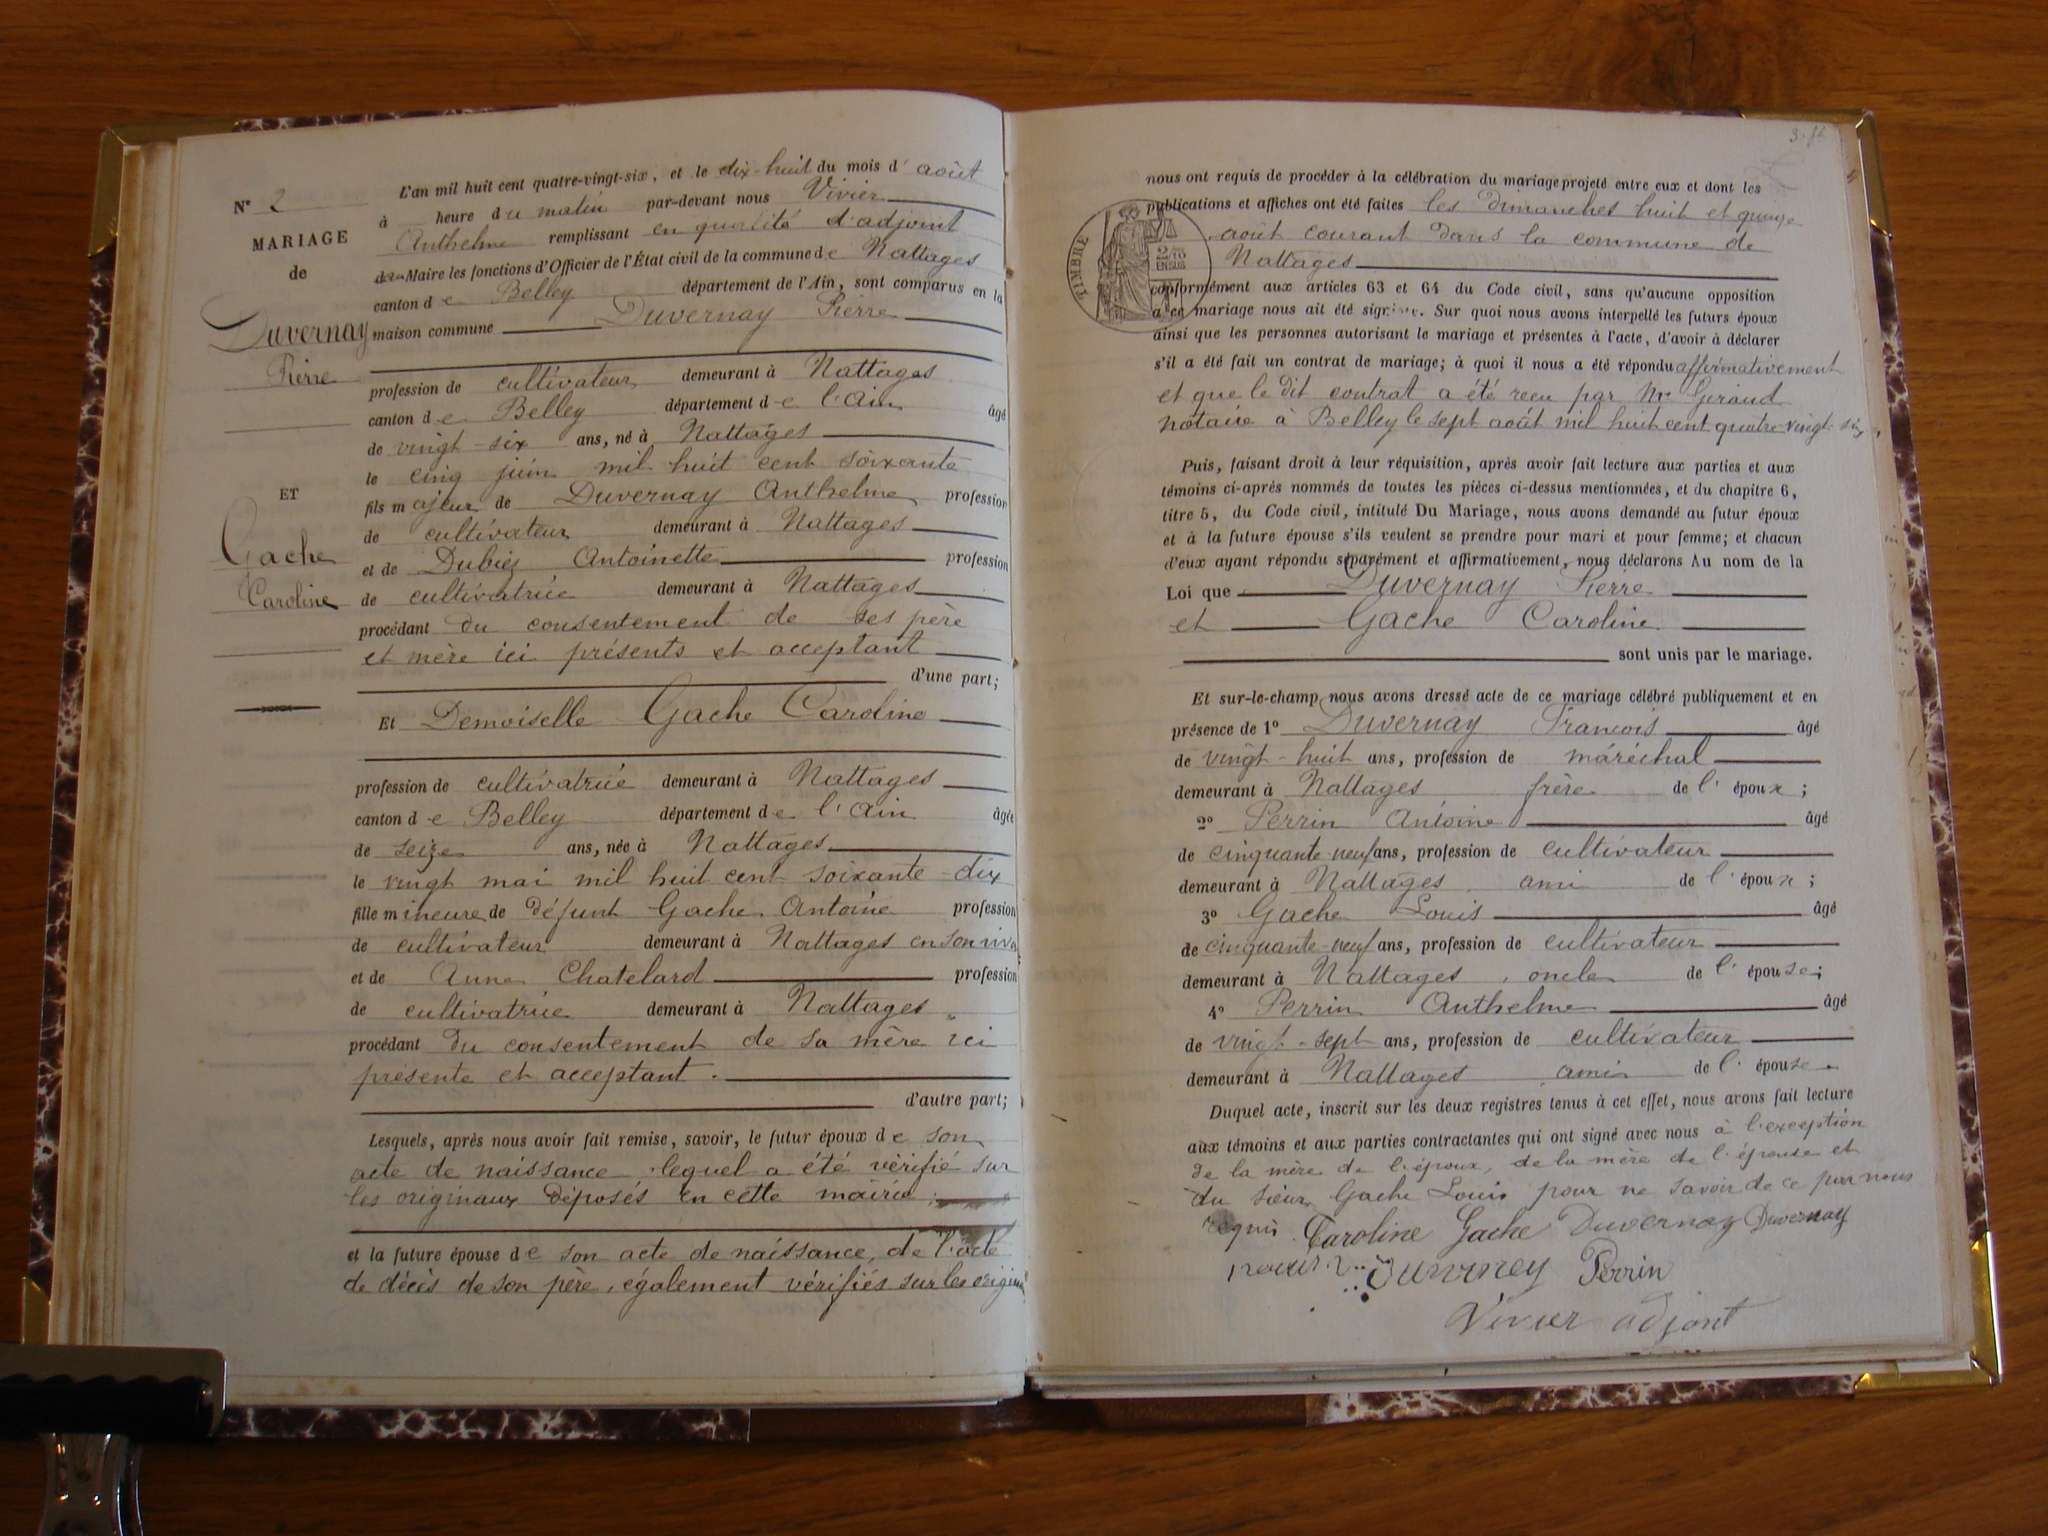 N° 2
MARIAGE
de
Duvernay
Pierre
ET
Gache
Caroline
L'an mil huit cent quatre-vingt-six, et le dix-huit du mois d' août
à heure du matin par-devant nous Vivier
Anthelme remplissant en qualité d'adjoint
Maire les fonctions d'Officier de l'État civil de la commune de Nattages
canton de Belley département de l'Ain, sont comparus en la
maison commune Duvernay Pierre
profession de cultivateur demeurant à Nattages
canton de Belley département de l'Ain âgé
de vingt-six ans, né à Nattages
le cinq juin mil huit cent soixante
fils majeur de Duvernay Anthelme profession
de cultivateur demeurant à Nattages
et de Antoinette profession
de cultivatrice demeurant à Nattages
procédant du consentement de ses père
et mère ici présents et acceptant
d'une part;
Et Demoiselle Gache Caroline
profession de cultivatrice demeurant à Nattages
canton de Belley département de l'Ain âgée
de seize ans, née à Nattages
le vingt mai mil huit cent soixante-dix
fille mineure de défunt Gache Antoine profession
de cultivateur demeurant à Nattages en son viva
et de Anne Chatelard profession
de cultivatrice demeurant à Nattages
procédant du consentement de sa mère ici
présente et acceptant.
d'autre part;
Lesquels, après nous avoir fait remise, savoir, le futur époux de son
acte de naissance lequel a été vérifié sur
les originaux déposés en cette mairie
et la future épouse de son acte de naissance, de l'acte
de décès de son père, également vérifiés sur les origin
nous ont requis de procéder à la célébration du mariage projeté entre eux et dont les
publications et affiches ont été faites les dimanches huit et quinze
TIMBRE
août courant dans la commune de
Nattages
conformément aux articles 63 et 64 du Code civil, sans qu'aucune opposition
à ce mariage nous ait été signifiée. Sur quoi nous avons interpellé les futurs époux
ainsi que les personnes autorisant le mariage et présentes à l'acte, d'avoir à déclarer
s'il a été fait un contrat de mariage; à quoi il nous a été répondu affirmativement
et que le dit contrat a été reçu par Me Giraud
notaire à Belley le sept août mil huit cent quatre-vingt-six
Puis, faisant droit à leur réquisition, après avoir fait lecture aux parties et aux
témoins ci-après nommés de toutes les pièces ci-dessus mentionnées, et du chapitre 6,
titre 5, du Code civil, intitulé Du Mariage, nous avons demandé au futur époux
et à la future épouse s'ils veulent se prendre pour mari et pour femme; et chacun
d'eux ayant répondu séparément et affirmativement, nous déclarons Au nom de la
Loi que Duvernay Pierre
et Gache Caroline
sont unis par le mariage.
Et sur-le-champ nous avons dressé acte de ce mariage célébré publiquement et en
présence de 1° Duvernay François âgé
de vingt-huit ans, profession de maréchal
demeurant à Nattages frère de l'époux;
2° Perrin Antoine âgé
de cinquante-neuf ans, profession de cultivateur
demeurant à Nattages ami de l'époux;
3° Gache Louis âgé
de cinquante-neuf ans, profession de cultivateur
demeurant à Nattages oncle de l'épouse;
4° Perrin Anthelme âgé
de vingt-sept ans, profession de cultivateur
demeurant à Nattages ami de l'épouse
Duquel acte, inscrit sur les deux registres tenus à cet effet, nous avons fait lecture
aux témoins et aux parties contractantes qui ont signé avec nous à l'exception
de la mère de l'époux, de la mère de l'épouse et
du sieur Gache Louis pour ne savoir de ce par nous
requis. Caroline Gache Duvernay Duvernay
Perrin
Vivier adjont